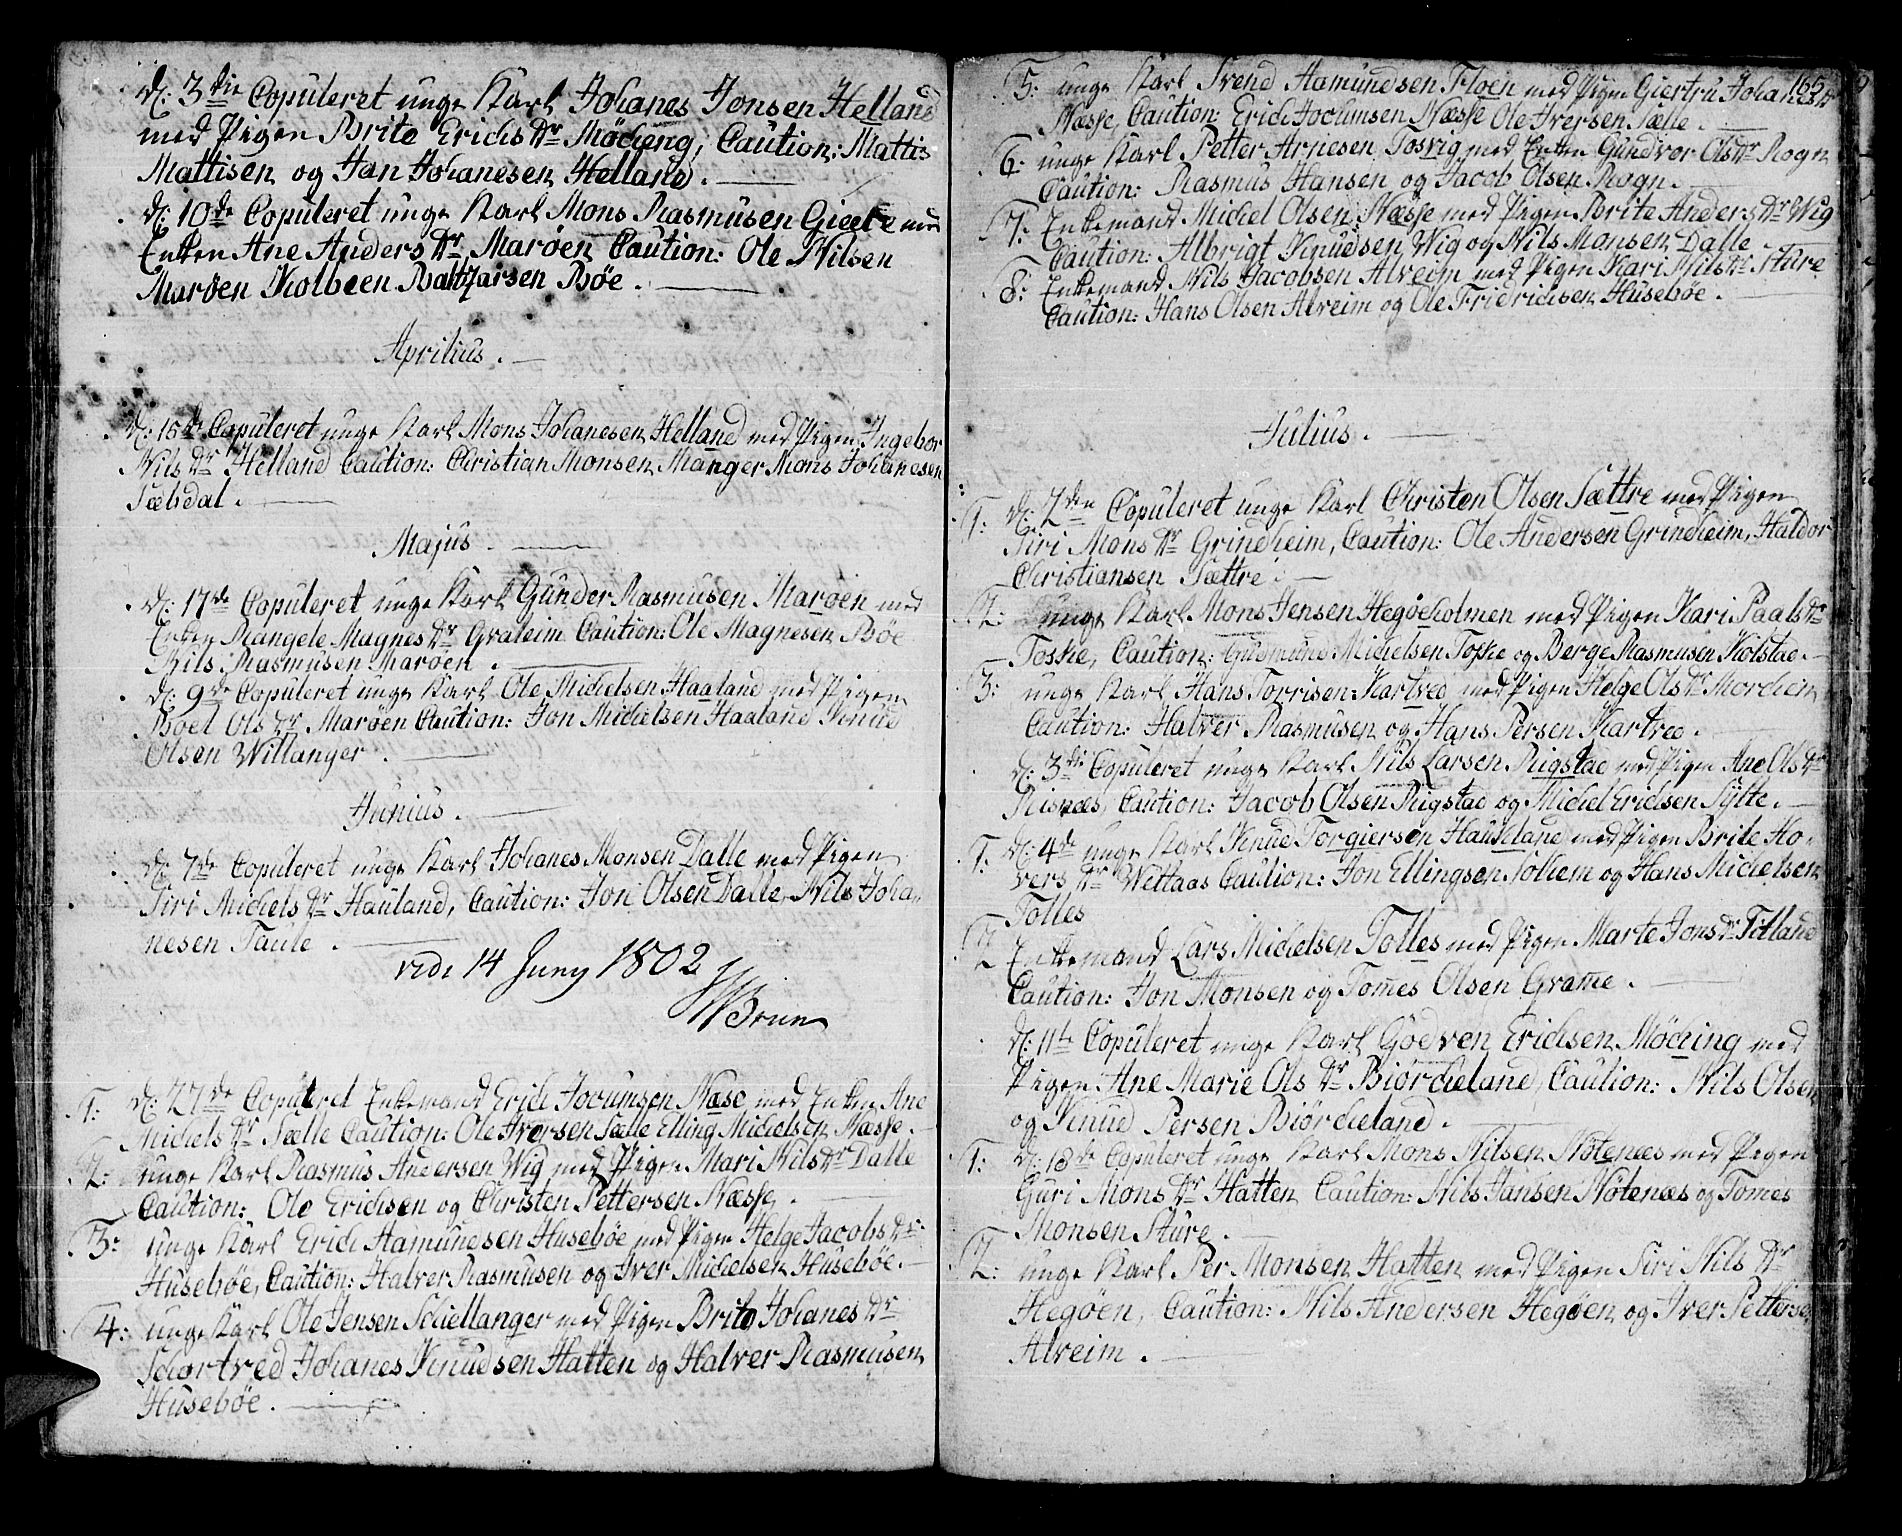 d: 3die Copuleret unge Karl Johanes Jonsen Helland
med Pigen Brite Erichs dr Möcheng, Caution: Mattis
Mattisen og Jan Johanesen Helland.
d: 10de Copuleret unge Karl Mons Rasmusen Gieete med
Enken Ane Anders dr Marøen Caution: Ole Nilsen
Marøen Kolbeen Baltzarsen Bøe.
Aprilius.
d: 15de Copuleret unge Karl Mons Johanesen Helland med Pigen Ingebor
Nils dr Helland Caution: Christian Monsen Manger Mons Johanesen
Sæbdal.
Majus.
d: 17de Copuleret unge Karl Gunder Rasmusen Marøen med
Enken Rangele Magnes dr Graleim Caution: Ole Magnesen Bøe
Nils Rasmusen Marøen.
d: 9de Copuleret unge Karl Ole Michelsen Haaland med Pigen
Boel Ols dr Marøen Caution: Jon Michelsen Haaland Knud
Olsen Willanger.
Junius.
d: 7de Copuleret unge Karl Johanes Monsen Dalle med Pigen
Siri Michels dr Hauland, Caution: Jon Olsen Dalle, Nils Joha-
nesen Taule.
vidi 14 Juny 1802
Brun
1: d: 27de Copuleret Enkemand Erich Jocumsen Næse med Enken Ane
Michels dr Sælle Caution: Ole Iversen Sælle Elling Michelsen Næsse.
2: unge Karl Rasmus Andersen Wig med Pigen Mari Nils dr Dalle
Caution: Ole Erichsen og Christen Pettersen Næsse.
3: unge Karl Erich Hamundsen Husebøe med Pigen Helge Jacobs dr
Husebøe, Caution: Halver Rasmusen og Iver Michelsen Husebøe.
4: unge Karl Ole Jensen Schellanger med Pigen Brito Johanes dr
Schartved Johanes Knudsen Hatten og Halver Rasmusen
Husebøe.
165
5: unge Karl Svend Hamundsen Floen med Pigen Giertru Johanes dr
Næsse, Caution: Erich Jocumsen Næsse Ole Iversen Sælle.
6: unge Karl Petter Arnesen Tosvig med Enken Gundvor Ols dr Rogn
Caution: Rasmus Hansen og Jacob Olsen Rogn.
7: Enkemand Michel Olsen Næsse med Pigen Brite Anders dr Wig
Caution: Albrigt Knudsen Wig og Nils Monsen Dalle.
8: Enkemand Nils Jacobsen Alveim med Pigen Kari Nils dr Sture
Caution: Hans Olsen Alveim og Ole Fridrichsen Husebøe.
Julius.
1: d: 2den Copuleret unge Karl Christen Olsen Sættre med Pigen
Siri Mons dr Grindheim, Caution: Ole Andersen Grindheim, Haldor
Christiansen Sættre.
2: unge Karl Mons Jensen Hegøeholmen med Pigen Kari Paals dr
Toske, Caution: Gudmund Michelsen Toske og Berge Rasmusen Kolstad.
3: unge Karl Hans Torrisen Kartved med Pigen Helge Ols dr Morchen
Caution: Halver Rasmusen og Hans Persen Kartved.
d: 3die Copuleret unge Karl Nils Larsen Rigstad med Pigen Ane Ols dr
Risnæs, Caution: Jacob Olsen Rigstad og Michel Erichsen Sylte.
1: d: 4de unge Karl Knud Torgiersen Hauseland med Pigen Brite Ho-
vers dr Wettaas Caution: Jon Ellingsen Solhem og Hans Michelsen
Tolles
2 Enkemand Lars Michelsen Tolles med Pigen Marte Jons dr Titland
Caution: Jon Monsen og Tomes Olsen Grame.
d: 11te Copuleret unge Karl Godven Erichsen Möching med
Pigen Ane Marie Ols dr Biørcheland, Caution: Nils Olsen
og Knud Persen Biørcheland.
1: d: 18de Copuleret unge Karl Mons Nilsen Nötenæs med Pigen
Guri Mons dr Hatten Caution: Nils Jansen Nötenæs og Tomes
Monsen Sture.
2: unge Karl Per Monsen Hatten med Pigen Siri Nils dr
Hegøen, Caution: Nils Andersen Hegøen og Iver Petterse
Alveim.